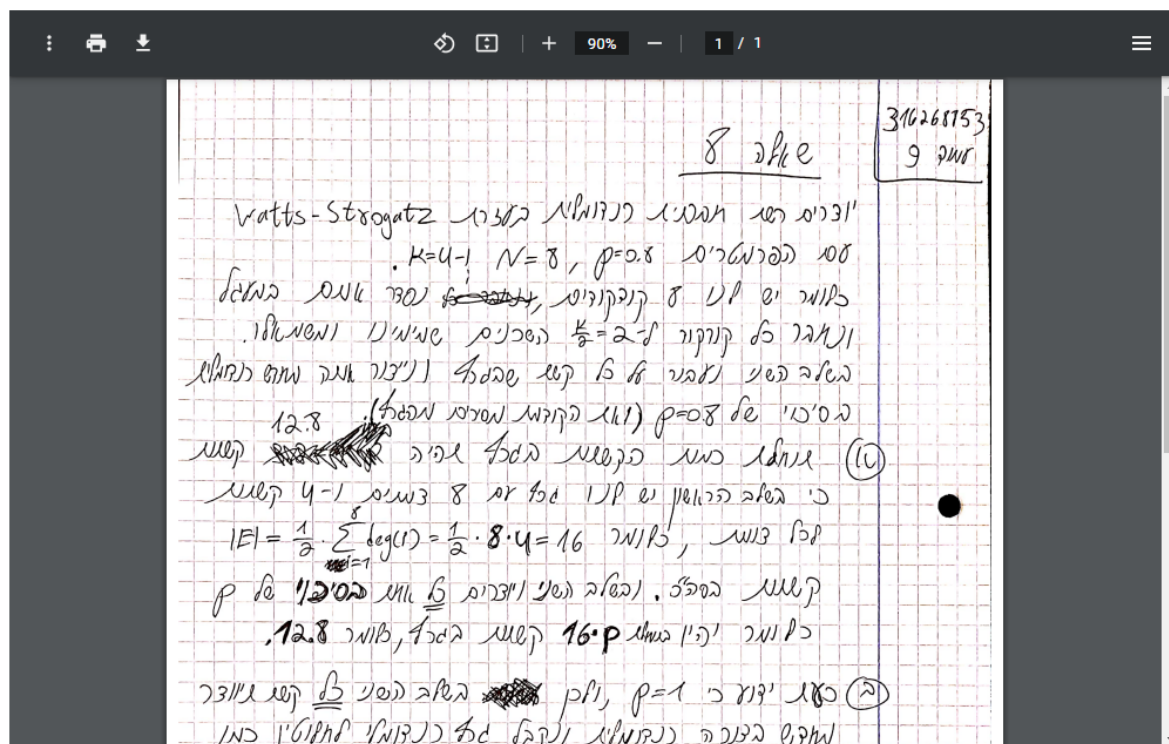 90%
1 / 1
316268153
עמוד 9
שאלה 8
יוצרים רשת חברתית רנדומלית בעזרת Watts-Strogatz
עם הפרמטרים p=0.8, N=8 ו-K=4.
כלומר יש לנו 8 קודקודים, נסדר אותם במעגל
ונחבר כל קודקוד ל-K/2=2 השכנים שמימינו ומשמאלו.
בשלב השני נעבור על כל קשת שבגרף ונייצור אותה מחדש רנדומלית
בסיכוי של p=0.8 (ואת הקודמת מסירים מהגרף).
12.8
א) תוחלת כמות הקשתות בגרף תהיה קשתות
כי בשלב הראשון יש לנו גרף עם 8 צמתים ו-4 קשתות
לכל צומת, כלומר |E| = 1/2 · Σ_{i=1}^{8} deg(i) = 1/2 · 8 · 4 = 16
קשתות בסה"כ. ובשלב השני יוצרים כל אחת בסיכוי של p
כלומר יהיו בתוחלת 16·p קשתות בגרף, כלומר 12.8.
ב) כעת ידוע כי p=1, ולכן בשלב השני כל קשת תיווצר
מחדש בצורה רנדומלית ונקבל גרף רנדומלי לחלוטין כמו